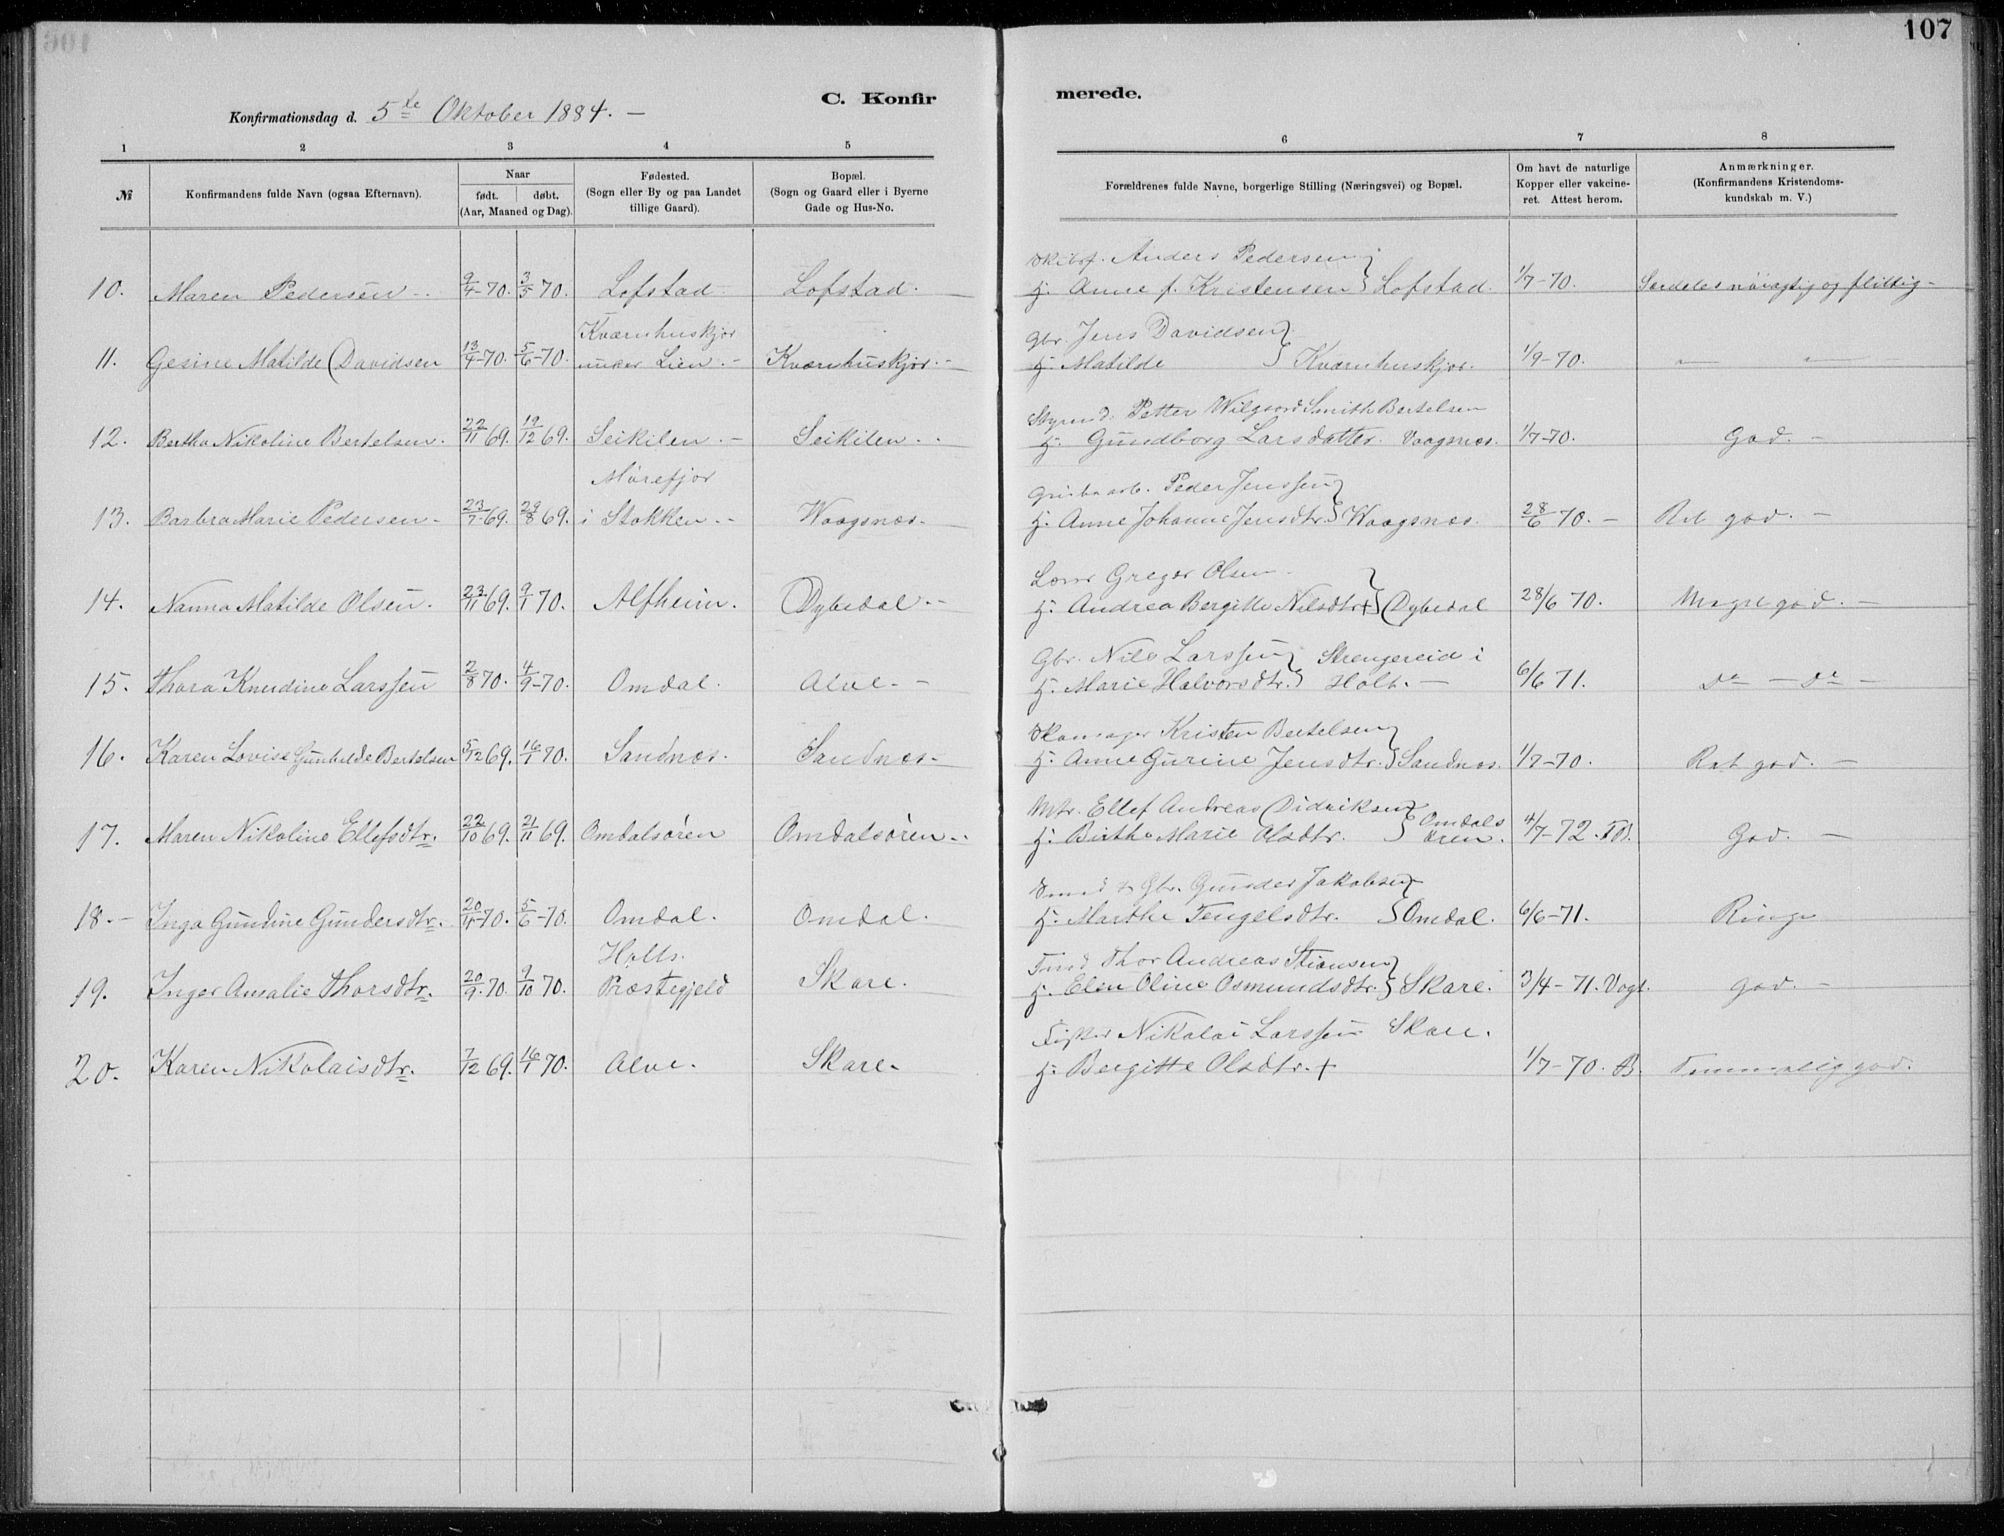 107
C. Konfirmerede.
Konfirmationsdag d. 5te Oktober 1884. —
1 2 3 4 5 6 7 8
№
Konfirmandens fulde Navn (ogsaa Efternavn).
Naar
født. døbt.
(Aar, Maaned og Dag).
Fødested.
(Sogn eller By og paa Landet
tillige Gaard).
Bopæl.
(Sogn og Gaard eller i Byerne
Gade og Hus-No.
Forældrenes fulde Navne, borgerlige Stilling (Næringsvei) og Bopæl.
Om havt de naturlige
Kopper eller vakcine-
ret. Attest herom.
Anmærkninger.
(Konfirmandens Kristendoms-
kundskab m. V.)
Anders Pedersen
10. Maren Pedersen 9/4-70. 3/5 70. Lofstad Lofstad. Hj. Anne f. Kristensen Lofstad. 1/7-70. Særdeles nöiagtig og flittig
Kværnhuskjær Gbr. Jens Davidsen
11. Gesine Matilde Davidsen 13/4-70. 5/6-70. under Lien. Kværnhuskjær. Hj. Matilde Kværnhuskjær. 1/9-70. — —
Styrmd. Petter Smith Bertelsen
12. Bertha Nikoline Bertelsen. 22/11 69. 19/12 69. Seikilen. Seikilen. Hj. Gundborg Larsdatter. Vaagsnæs. 1/7-70. God.
Mörefjær Peder Jenssen
13. Barbra Marie Pedersen 23/7-69. 29/8 69. i Stokken. Waagsnæs. Hj. Anne Johanne Jensdtr. Waagsnæs. 28/6 70. God.
Greger Olsen
14. Nanna Matilde Olsen. 23/11 69. 9/1 70. Alfheim. Dybedal. Hj. Andrea Bergitte Nilsdtr + Dybedal 28/6 70. Meget god.
Gbr. Nils Larssen Strengereid i
15. Thora Knudine Larssen 2/8 70. 4/9-70. Omdal. Alve. Hj. Marie Halvorsdtr. Holt. 6/6 71. Do — Do
Skomager Kristen Bertelsen
16. Karen Lovise Gunhilde Bertelsen 5/12 69. 16/1 70. Sandnæs. Sandnæs. Hj. Anne Gurine Jensdtr. Sandnæs. 1/7-70. god.
Mtr. Ellef Andreas Didriksen Omdals
17. Maren Nikoline Ellefsdtr. 22/10 69. 21/11 69. Omdalsøren Omdalsøren. Hj. Birthe Marie Olsdtr. øren. 4/7-72. God.
Smed & Gbr. Gunder Jakobsen
18. Inga Gundine Gundersdtr. 20/4-70. 5/6-70. Omdal. Omdal. Hj. Marthe Tengelsdtr. Omdal. 6/6-71. Ringe
Holts Thor Andreas Stiansen
19. Inger Amalie Thorsdtr. 20/9 70. 9/10 70. Præstegjeld Skare. Hj. Elen Oline Osmundsdtr. Skare. 3/4-71. Vogt. god.
Fisker Nikolai Larssen Skare.
20. Karen Nikolaisdtr. 7/12 69. 16/1 70. Alve. Skare. Hj. Bergitte Olsdtr. + 1/7-70. B. Temmelig god.